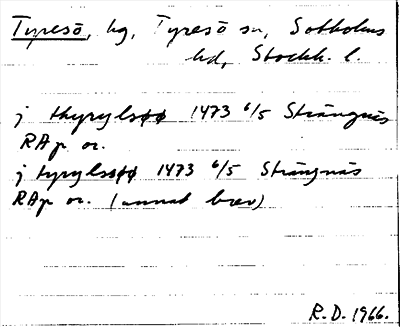 Tyresö, hg, Tyresö sn, Sotholms
hd, Stockh. l.
j thyrylsøø 1473 6/5 Strängnäs
RAp or.
j tyrylsøø 1473 6/5 Strängnäs
RAp or. (annat brev)
R.D. 1966.